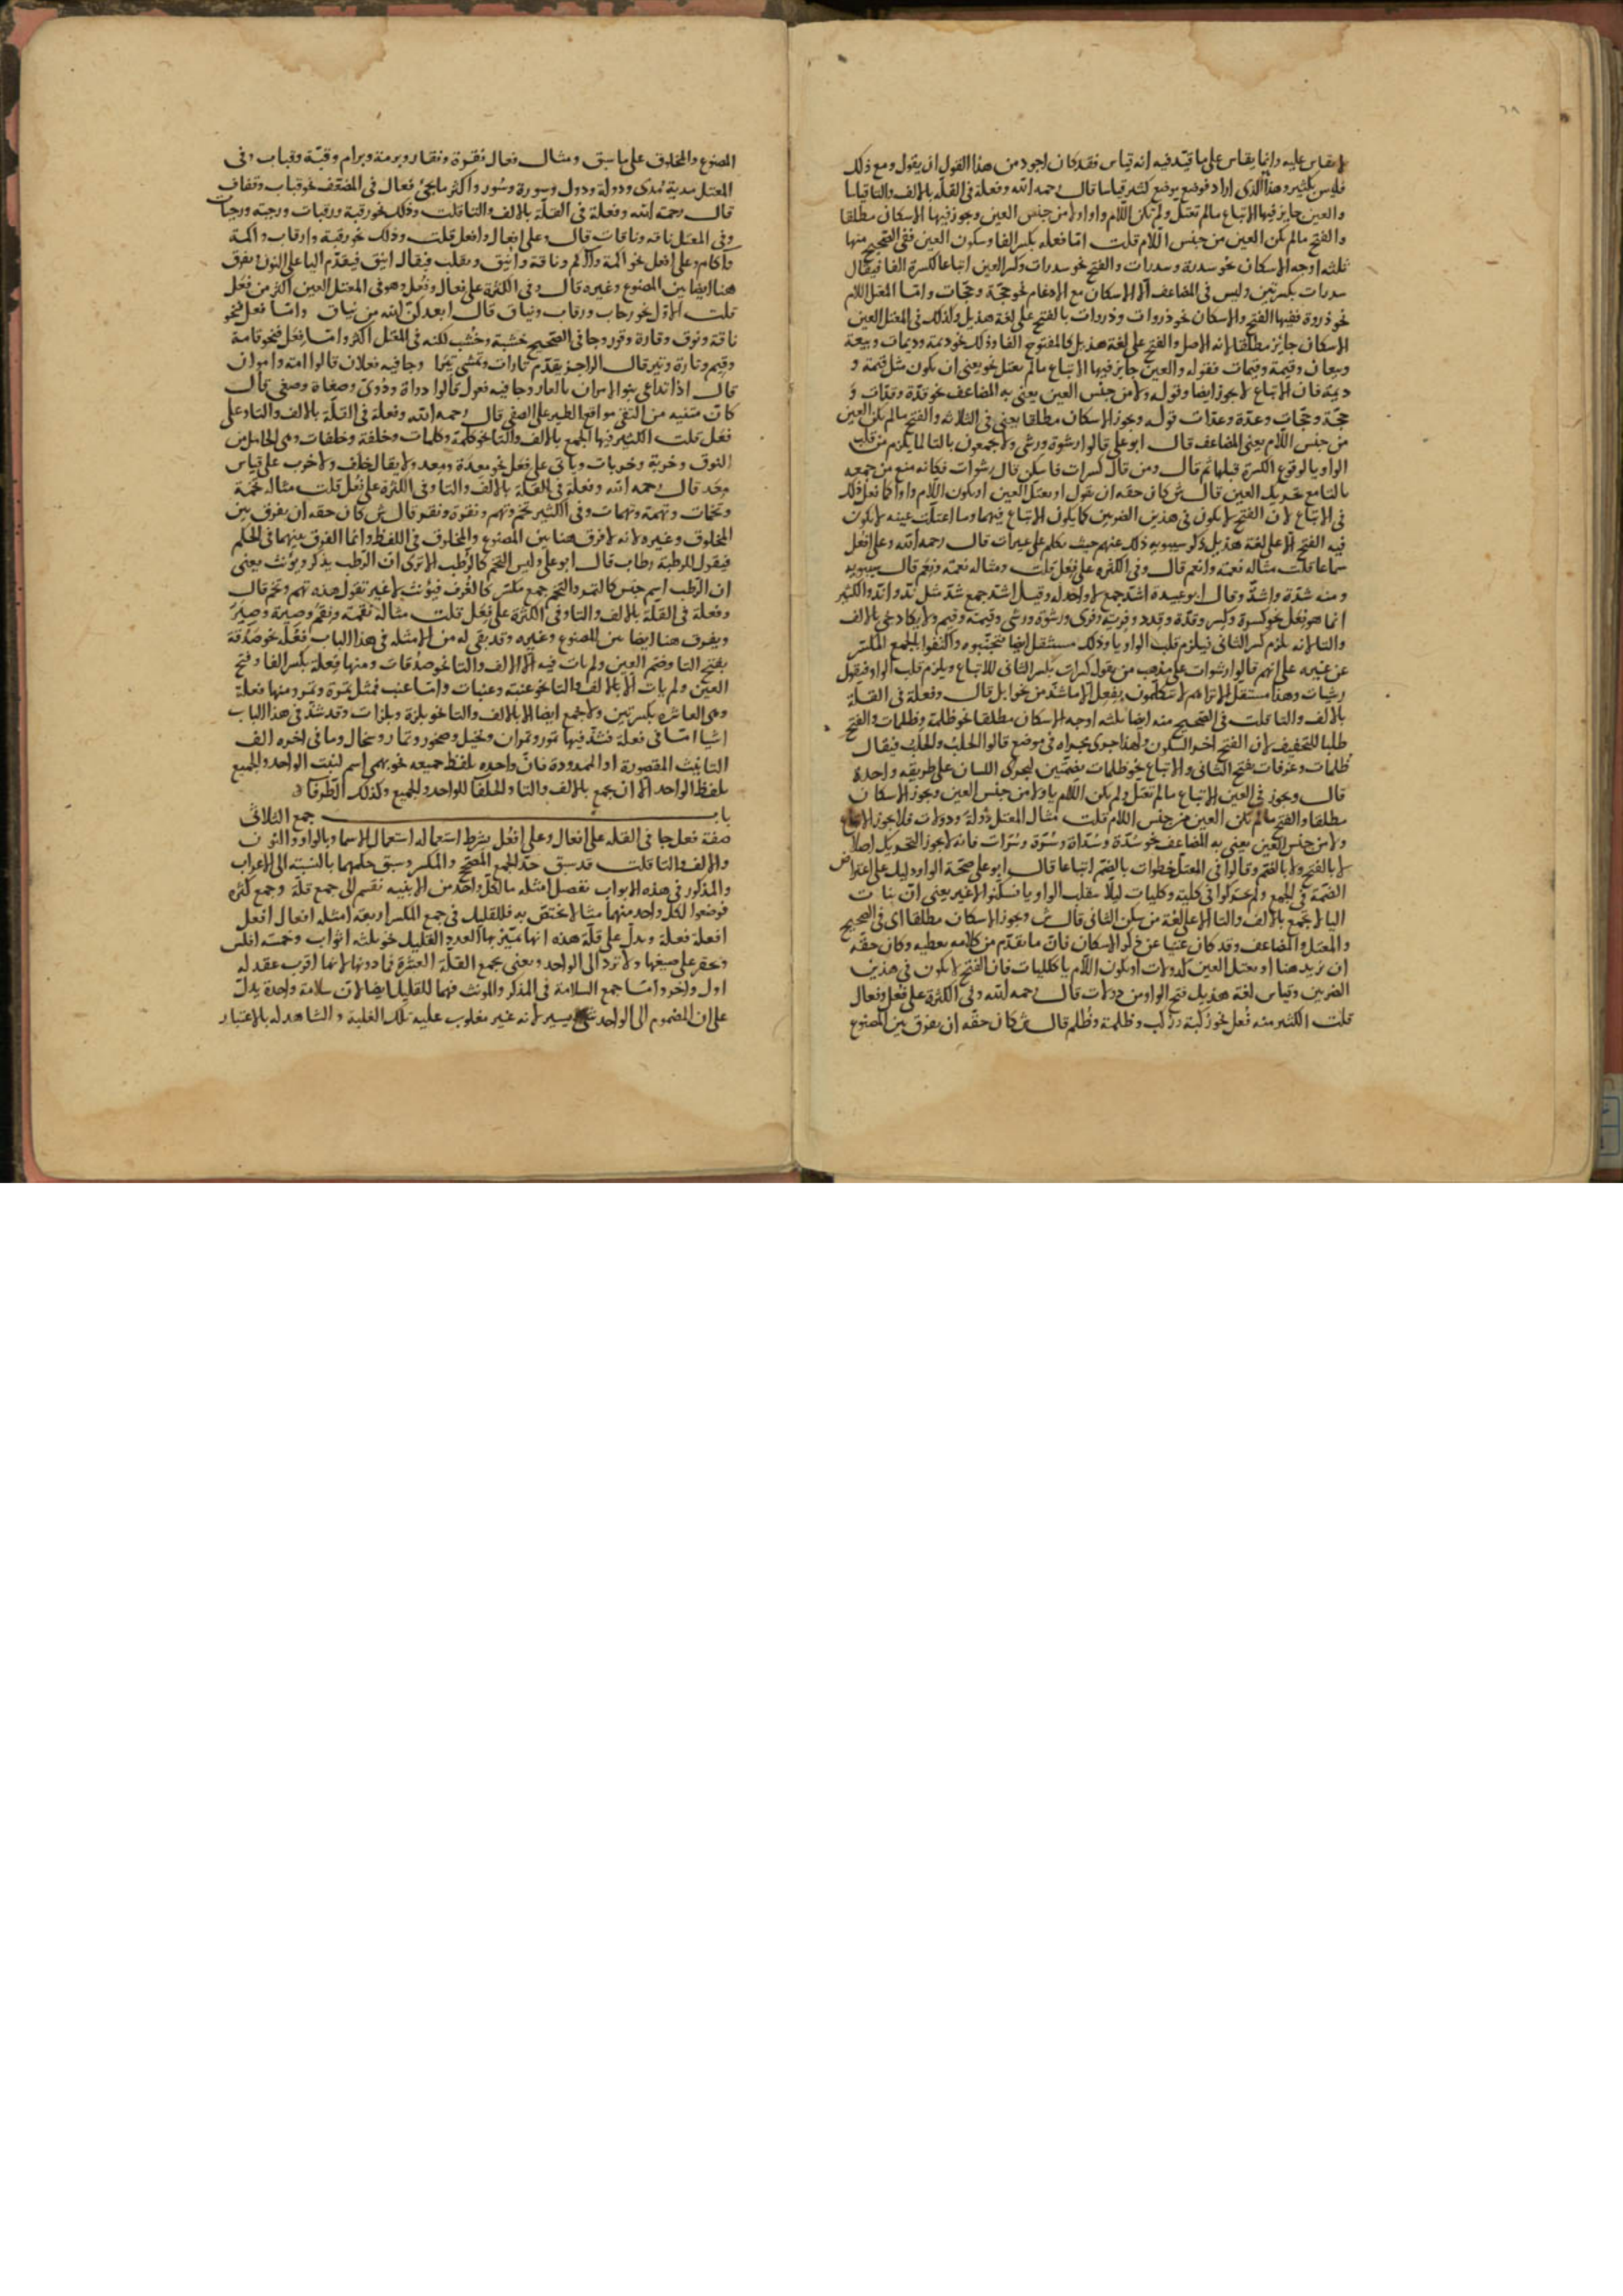 لا يقاس عليه وانما يقاس على ما قيد فيه انه قياس فقد كان اجود من هذا القول ان يقول ومع ذلك
فليس بكثير وهذا الذى اراد فوضع يوضع كثير قياسا قال رحمه الله وفعلة فى القلة بالالف والتا قياسا
والعين جايز فيها الاتباع ما لم تعتل ولم تكن اللام واوا ولا من جنس العين ويجوز فيها الاسكان مطلقا
والفتح ما لم تكن العين من جنس اللام قلت اما فعله بكسر الفا وسكون العين ففى الصحيح منها
ثلثه اوجه الاسكان نحو سدرة وسدرات والفتح نحو سدرات وكسر العين اتباعا لكسرة الفا فيقال
سدرات بكسرتين وليس فى المضاعف الا الاسكان مع الادغام نحو حجة وحجات واما المعتل اللام
نحو ذروة ففيها الفتح والاسكان نحو ذروات وذروات بالفتح على لغة هذيل وكذلك فى المعتل العين
الاسكان جايز مطلقا لانه الاصل والفتح على لغة هذيل كالمفتوح الفا وذلك نحو ديمة وديمات وبيعة
وبيعات وقيمة وقيمات فقوله والعين جايز فيها الاتباع ما لم يعتل نحو يعنى ان يكون مثل قيمة و
ديمة فان الاتباع لا يجوز ايضا وقوله ولا من جنس العين يعنى به المضاعف نحو قدة وقدات و
حجة وحجات وعدة وعدات قوله ويجوز الاسكان مطلقا يعنى فى الثلاثه والفتح ما لم يكن العين
من جنس اللام يعنى المضاعف قال ابو على قالوا رشوة ورشى ولا يجمعون بالتا لما يلزم من قلب
الواو يا لوقوع الكسرة قبلها ثم قال ومن قال كسرات فاسكن قال رشوات فكانه منع من جمعه
بالتا مع تحريك العين قال ش كان حقه ان يقول او يعتل العين او يكون اللام واوا كما فعل ذلك
فى الاتباع لان الفتح لا يكون فى هذين الضربين كما يكون الاتباع فيهما وما اعتلت عينه لا يكون
فيه الفتح الا على لغة هذيل ذكر سيبويه ذلك عنهم حيث تكلم على عيرات قال رحمه الله وعلى افعل
سماعا قلت مثاله نعمة وانعم قال وفى الكثره على فعل قلت ومثاله نعمة ونعم قال سيبويه
ومنه شدة واشد وقال ابو عبيدة اشد جمع لا واحد له وقيل اشد جمع شد مثل ند واند والكثير
انما هو فعل نحو كسرة وكسر وقدة وقدد وفرية وفرى ورشوة ورشى وقيمة وقيم ولا يكاد يجى بالالف
والتا لانه يلزم كسر الثانى فيلزم قلب الواو يا وذلك مستثقل ايضا فتجنبوه واكتفوا بالجمع المكسر
عن غيره على انهم قالوا رشوات على مذهب من يقول كسرات بكسر الثانى للاتباع ويلزم قلب الواو فيقول
رشيات وهذا مستقل الا تراهم لا يتكلمون بفعل الا ما شذ من نحو ابل قال وفعلة فى القلة
بالالف والتا قلت فى الصحيح منه ايضا ثلثه اوجه الاسكان مطلقا نحو ظلمة وظلمات والفتح
طلبا للتخفيف لان الفتح اخو السكون ولهذا جرى مجراه فى موضع قالوا الحلب والحلب فيقال
ظلمات وغرفات بفتح الثانى والاتباع نحو ظلمات بضمتين ليجرى اللسان على طريقه واحدة
قال ويجوز فى العين الاتباع ما لم تعتل ولم يكن اللام يا ولا من جنس العين ويجوز الاسكان
مطلقا والفتح ما لم تكن العين من جنس اللام قلت مثال المعتل دولة ودولات فلا يجوز الاتباع
ولا من جنس العين يعنى به المضاعف نحو سدة وسدات وسرة وسرات فانه لا يجوز التحريك اصلا
لا بالفتح ولا بالضم وقالوا فى المعتل خطوات بالضم اتباعا قال ابو على صحة الواو دليل على اعتراض
الضمة فى الجمع ولم يحركوا فى كلية وكليات ليلا تنقلب الواو يا فسكنوا لا غير يعنى ان بنات
اليا لا تجمع بالالف والتا الا على لغة من سكن الثانى قال ش ويجوز الاسكان مطلقا اى فى الصحيح
والمعتل والمضاعف وقد كان غنيا عن ذكر الاسكان فان ما تقدم من كلامه يعطيه وكان حقه
ان يزيد هنا او يعتل العين كدولات او يكون اللام يا ككليات فان الفتح لا يكون فى هذين
الضربين وقياس لغة هذيل فتح الواو من دولات قال رحمه الله وفى الكثرة على فعل وفعال
قلت الكثير منه فعل نحو ركبة وركب وظلمة وظلم قال ش كان حقه ان يفرق بين المصنوع
المصنوع والمخلوق على ما سبق ومثال فعال نقرة ونقار وبرمة وبرام وقبة وقباب وفى
المعتل مدية ومدى ودولة ودول وسورة وسور واكثر ما يجئ فعال فى المضعف نحو قباب وقفاف
قال رحمة الله وفعلة فى القلة بالالف والتا قلت وذلك نحو رقبة ورقبات ورحبة ورحبات
وفى المعتل ناقه وناقات قال وعلى افعال وافعل قلت وذلك نحو رقبة وارقاب واكمة
وآكام وعلى افعل نحو اكمة وآكم وناقة وانيق ويقلب فيقال اينق فيقدم اليا على النون يفرق
هنا ايضا بين المصنوع وغيره قال وفى الكثرة على فعال وفعل وهو فى المعتل العين اكثر من فعل
قلت الاول نحو رحاب ورقاب ونياق قال ابعدكن الله من نياق واما فعل فنحو
ناقة ونوق وقارة وقور وجا فى الصحيح خشبة وخشب لكنه فى المعتل اكثر واما فعل فنحو قامة
وقيم وتارة وتير قال الراجز يقدم تارات وتمشى تيرا وجا فيه فعلان قالوا امة واموان
قال اذا تداعى بنو الاموان بالعار وجا فيه فعول قالوا دواة ودوى وصفاة وصفى قال
كان متنيه من النفى مواقع الطير على الصفى قال رحمه الله وفعلة فى القلة بالالف والتا وعلى
فعل قلت الكثير فيها الجمع بالالف والتا نحو كلمة وكلمات وخلفة وخلفات وهى الحامل من
النوق وخربة وخربات وياتى على فعل نحو معدة ومعد ولا يقال خلف ولا خرب على قياس
معد قال رحمه الله وفعلة فى القلة بالالف والتا وفى الكثرة على فعل قلت مثاله تخمة
وتخمات وتهمة وتهمات وفى الكثير تخم وتهم ونقرة ونقر قال ش كان حقه ان يفرق بين
المخلوق وغيره لانه لا فرق هنا بين المصنوع والمخلوق فى اللفظ وانما الفرق بينهما فى الحكم
فيقول الرطبة رطاب قال ابو على وليس التخم كالرطب الا ترى ان الرطب يذكر ويؤنث يعنى
ان الرطب اسم جنس كالتمر والتخم جمع مكسر كالغرف فيؤنث لا غير تقول هذه تهم وتخم قال
وفعلة فى القلة بالالف والتا وفى الكثرة على فعل قلت مثاله نقمة ونقم وصيرة وصير
ويفرق هنا ايضا بين المصنوع وغيره وقد بقى له من الامثله فى هذا الباب فعلة نحو صدقة
بفتح التا وضم العين ولم يات فيه الا الالف والتا نحو صدقات ومنها فعلة بكسر الفا وفتح
العين ولم يات الا بالالف والتا نحو عنبة وعنبات واما عنب فمثل تمرة وتمر ومنها فعلة
وهى العاشرة بكسرتين ولا يجمع ايضا الا بالالف والتا نحو بلزة وبلزات وقد شذ فى هذا الباب
اشيا اما فى فعلة فشذ فيها تمور وتمران ونخيل وصخور وتمار وسخال وما فى اخره الف
التانيث المقصورة او الممدودة فان واحده بلفظ جميعه نحو بهمى اسم لنبت الواحد والجميع
بلفظ الواحد الا ان يجمع بالالف والتا والحلفا للواحد والجميع وكذلك الطرفا
باب جمع الثلاثى
صفة فعل جا فى القله على افعال وعلى افعل بشرط استعماله استعمال الاسما وبالواو والنون
والالف والتا قلت قد سبق حد الجمع المصحح والمكسر وسبق حكمهما بالنسبة الى الاعراب
والمذكور فى هذه الابواب تفصيل امثله ما لكل واحد من الابنيه تقسم الى جمع قلة وجمع كثره
فوضعوا لكل واحد منهما مثالا يختص به فللقليل فى جمع المكسر اربعة امثله افعال افعل
افعلة فعلة ويدل على قلة هذه انها تميز بها العدد القليل نحو ثلثه اثواب وخمسه افلس
وتحقر على صيغها ولا ترد الى الواحد ويعنى بجمع القلة العشرة فما دونها لانها اقرب عقد له
اول واخر واما جمع السلامة فى المذكر والمونث فهما للقليل ايضا لان سلامة واحدة يدل
على ان المضموم الى الواحد شئ يسير لانه غير مغلوب عليه تلك الغلبة والشاهد له بالاعتبار